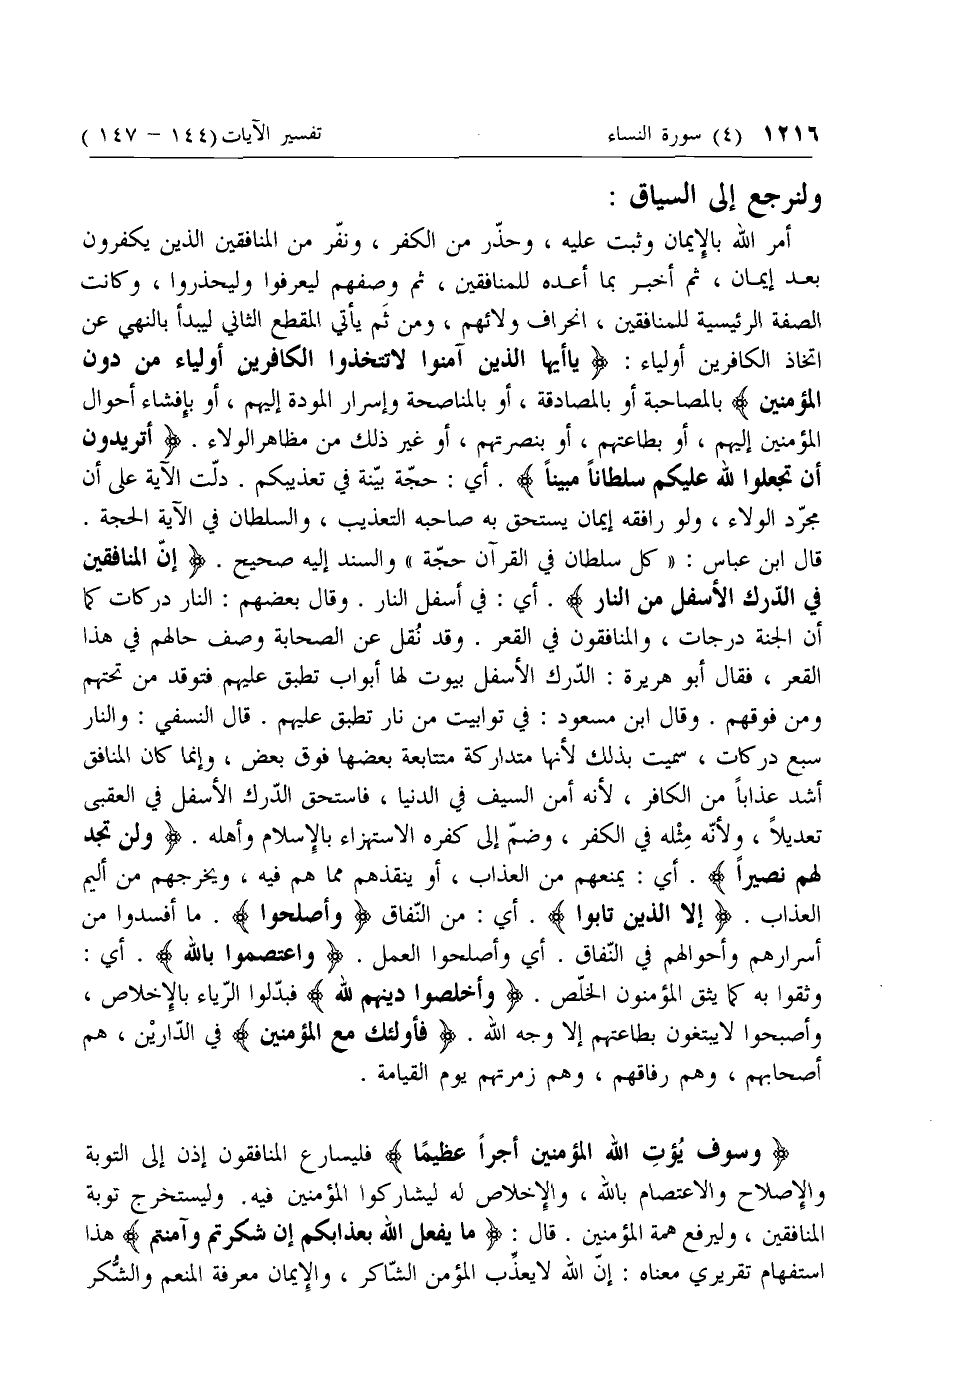 ١٢١٦ (٤) سورة النساء تفسير الآيات (١٤٤ – ١٤٧)
ولنرجع إلى السياق :
أمر الله بالإيمان وثبت عليه ، وحذّر من الكفر ، ونفّر من المنافقين الذين يكفرون
بعد إيمان ، ثم أخبر بما أعده للمنافقين ، ثم وصفهم ليعرفوا وليحذروا ، وكانت
الصفة الرئيسية للمنافقين ، انحراف ولائهم ، ومن ثَم يأتي المقطع الثاني ليبدأ بالنهي عن
اتخاذ الكافرين أولياء : ﴿ ياأيها الذين آمنوا لاتتخذوا الكافرين أولياء من دون
المؤمنين ﴾ بالمصاحبة أو بالمصادقة ، أو بالمناصحة وإسرار المودة إليهم ، أو بإفشاء أحوال
المؤمنين إليهم ، أو بطاعتهم ، أو بنصرتهم ، أو غير ذلك من مظاهر الولاء . ﴿ أتريدون
أن تجعلوا لله عليكم سلطاناً مبيناً ﴾ . أي : حجّة بيّنة في تعذيبكم . دلّت الآية على أن
مجرّد الولاء ، ولو رافقه إيمان يستحق به صاحبه التعذيب ، والسلطان في الآية الحجة .
قال ابن عباس : « كل سلطان في القرآن حجّة » والسند إليه صحيح . ﴿ إنّ المنافقين
في الدّرك الأسفل من النار ﴾ . أي : في أسفل النار . وقال بعضهم : النار دركات كما
أن الجنة درجات ، والمنافقون في القعر . وقد نُقل عن الصحابة وصف حالهم في هذا
القعر ، فقال أبو هريرة : الدّرك الأسفل بيوت لها أبواب تطبق عليهم فتوقد من تحتهم
ومن فوقهم . وقال ابن مسعود : في توابيت من نار تطبق عليهم . قال النسفي : والنار
سبع دركات ، سميت بذلك لأنها متداركة متتابعة بعضها فوق بعض ، وإنما كان المنافق
أشد عذاباً من الكافر ، لأنه أمن السيف في الدنيا ، فاستحق الدّرك الأسفل في العقبى
تعديلاً ، ولأنّه مِثْله في الكفر ، وضمّ إلى كفره الاستهزاء بالإسلام وأهله . ﴿ ولن تجد
لهم نصيراً ﴾ . أي : يمنعهم من العذاب ، أو ينقذهم مما هم فيه ، ويخرجهم من أليم
العذاب . ﴿ إلا الذين تابوا ﴾ . أي : من النّفاق ﴿ وأصلحوا ﴾ . ما أفسدوا من
أسرارهم وأحوالهم في النّفاق . أي وأصلحوا العمل . ﴿ واعتصموا بالله ﴾ . أي :
وثقوا به كما يثق المؤمنون الخلّص . ﴿ وأخلصوا دينهم لله ﴾ فبدّلوا الرّياء بالإخلاص ،
وأصبحوا لايبتغون بطاعتهم إلا وجه الله . ﴿ فأولئك مع المؤمنين ﴾ في الدّاريْن ، هم
أصحابهم ، وهم رفاقهم ، وهم زمرتهم يوم القيامة .
﴿ وسوف يُؤتِ الله المؤمنين أجراً عظيمًا ﴾ فليسارع المنافقون إذن إلى التوبة
والإصلاح والاعتصام بالله ، والإخلاص له ليشاركوا المؤمنين فيه. وليستخرج توبة
المنافقين ، وليرفع همة المؤمنين . قال : ﴿ ما يفعل الله بعذابكم إن شكرتم وآمنتم ﴾ هذا
استفهام تقريري معناه : إنّ الله لايعذِّب المؤمن الشّاكر ، والإيمان معرفة المنعم والشُّكر